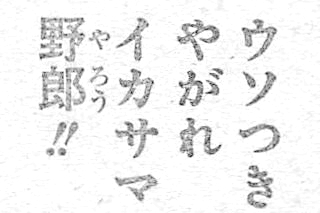 ウソつき
やがれ
イカサマ
野郎!!
やろう